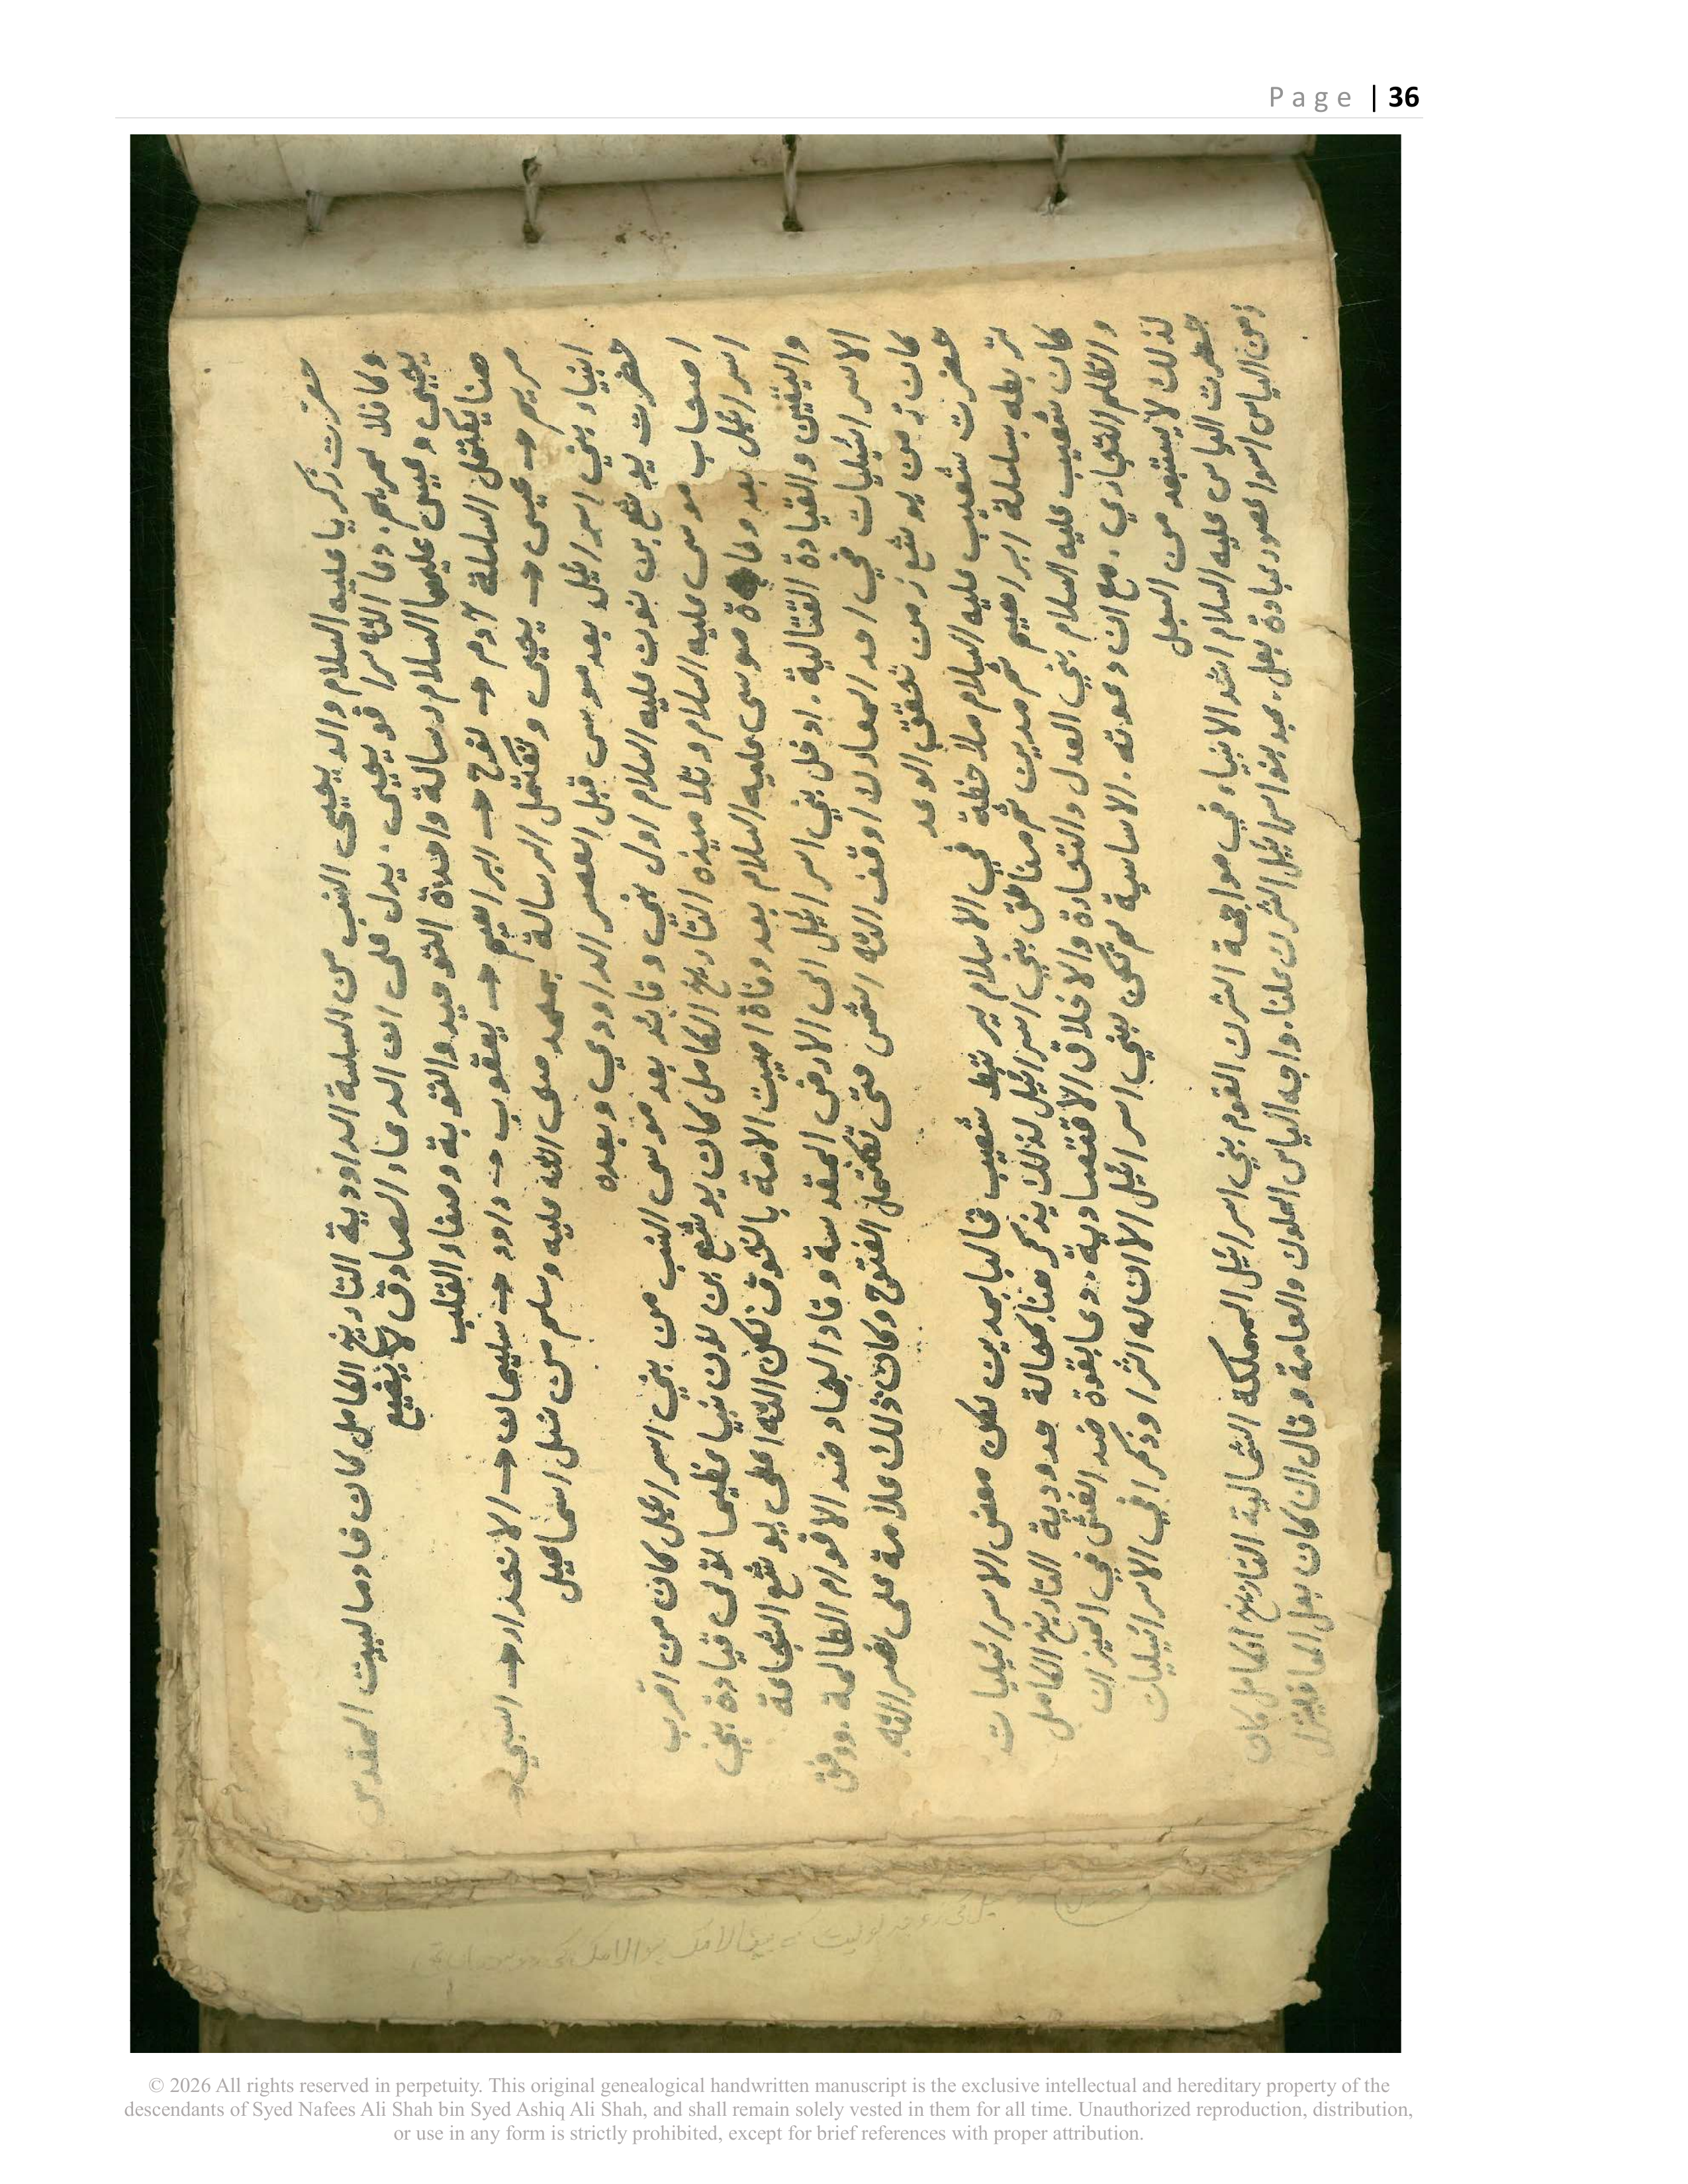 Page | 36
حضرت زكريا عليه السلام والد يحيى النسب من السلسة الداودية التاريخ الكامل كان خادما لبيت المقدس
وكافلا لمريم. دعا الله سرا قو يحيى. يدل على ان الدعاء الصادق لا يضيع
يحيى وعيسى عليهما السلام رسالة واحلاة التوحيد والتوبة وصفاء القلب
هنا يكتمل السلسلة آدم → نوح → ابراهيم → يعقوب → داود → سليمان → الانحدار → النبي →
مريم → عيسى → يحيى وتكتمل الرسالة بمحمد صلى الله عليه وسلم من نسل اسماعيل
انبياء بني اسرائيل بعد موسى قبل العصر الداودي وبعده
حضرت يوشع بن نون عليه السلام اول نبي وقائد بعد موسى النسب من بني اسرائيل كان من اقرب
اصحاب موسى عليه السلام وتلاميذه التاريخ الكامل كان يوشع بن نون نبيا عظيما تولى قيادة بني
اسرائيل بعد وفاة موسى عليه السلام بعد وفاة اصيبت الامة بالخوف لكن الله اعطى يوشع الشجاعة
واليقين والقيادة القتالية. ادخل بني اسرائيل الى الارض المقدسة وقاد الجهاد ضد الاقوام الظالمة. ووفق
الاسرائيليات في احد المعارك اوقف الله الشمس حتى تكتمل الفتوح وكان ذلك علامة على نصر الله.
كان زمن يوشع زمن تحقق الوعد
حضرت شعيب عليه السلام ملاحظة في الاسلام يرتبط شعيب غالبا بمدين لكن بعض الاسرائيليات
تربطه بسلسلة ابراهيم ثم مدين ثم مناطق بني اسرائيل لذلك يذكر هنا كحالة حدودية التاريخ الكامل
كان شعيب عليه السلام نبي العدل والتجارة والاخلاق الاقتصادية. دعا بقوة ضد الغش في الميزان
والظلم التجاري. مع ان دعوته. الاساسية لم تكن بني اسرائيل الا ان له اثرا وذكرا في الاسرائيليات
لذلك لا يستبعد من السجل
حضرت الياس عليه السلام اشد الانبياء في مواجهة الشرك القوم بني اسرائيل المملكة الشمالية التاريخ الكامل كان
زمن الياس اسوا عصور عبادة بعل. عبد بنو اسرائيل الشرك علنا. واجه الياس الملوك والعامة وقال ان كان بعل الها فلينزل
© 2026 All rights reserved in perpetuity. This original genealogical handwritten manuscript is the exclusive intellectual and hereditary property of the
descendants of Syed Nafees Ali Shah bin Syed Ashiq Ali Shah, and shall remain solely vested in them for all time. Unauthorized reproduction, distribution,
or use in any form is strictly prohibited, except for brief references with proper attribution.